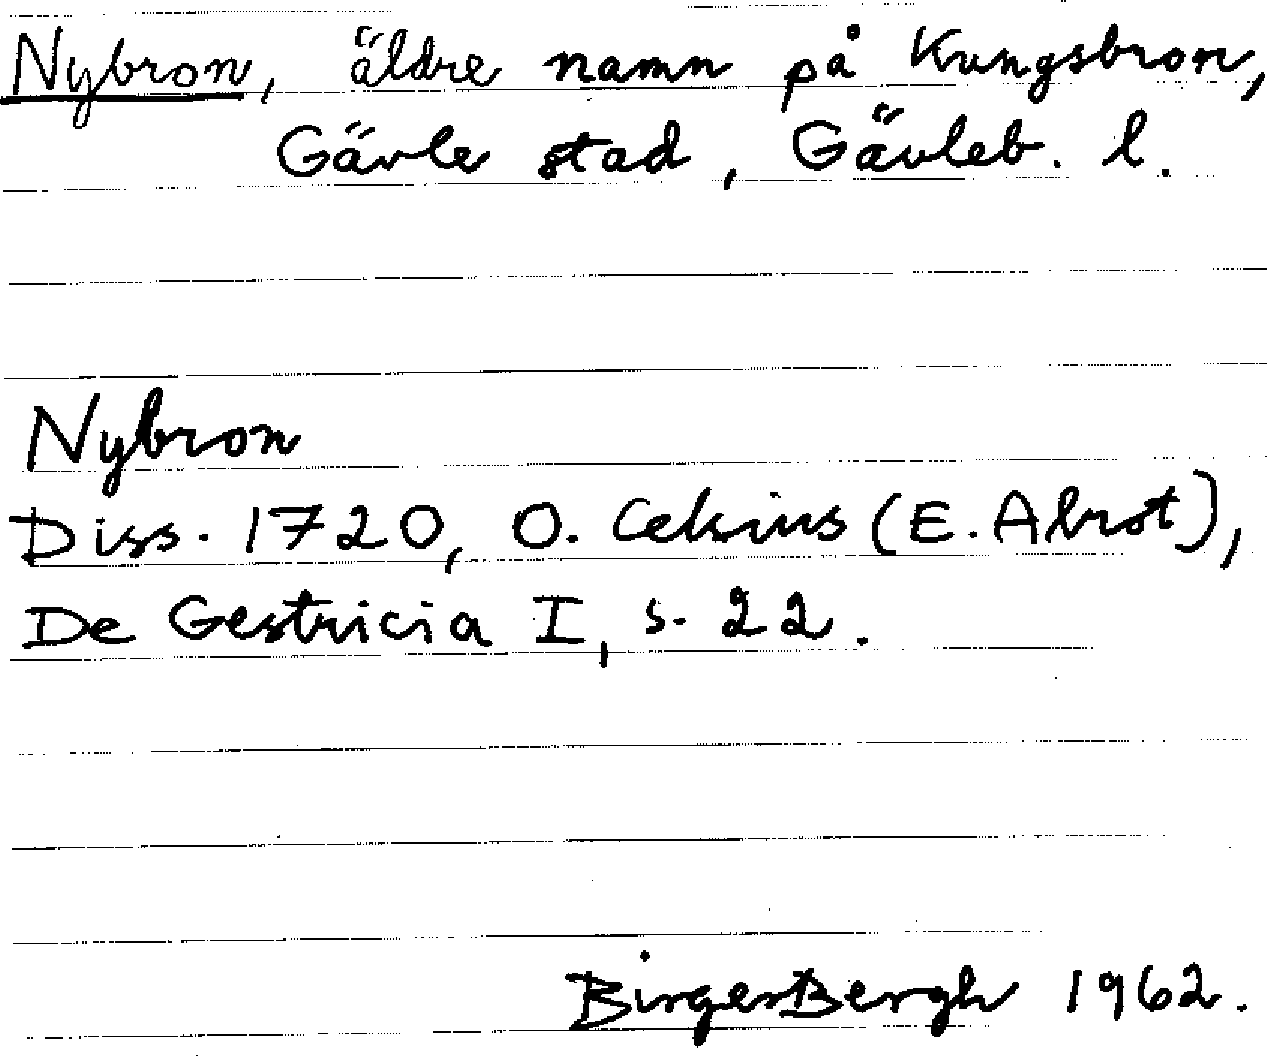 Nybron, äldre namn på Kungsbron,
Gävle stad, Gävleb. l.
Nybron
Diss. 1720, O. Celsius (E. Abrot),
De Gestricia I, s. 22.
Birger Bergh 1962.